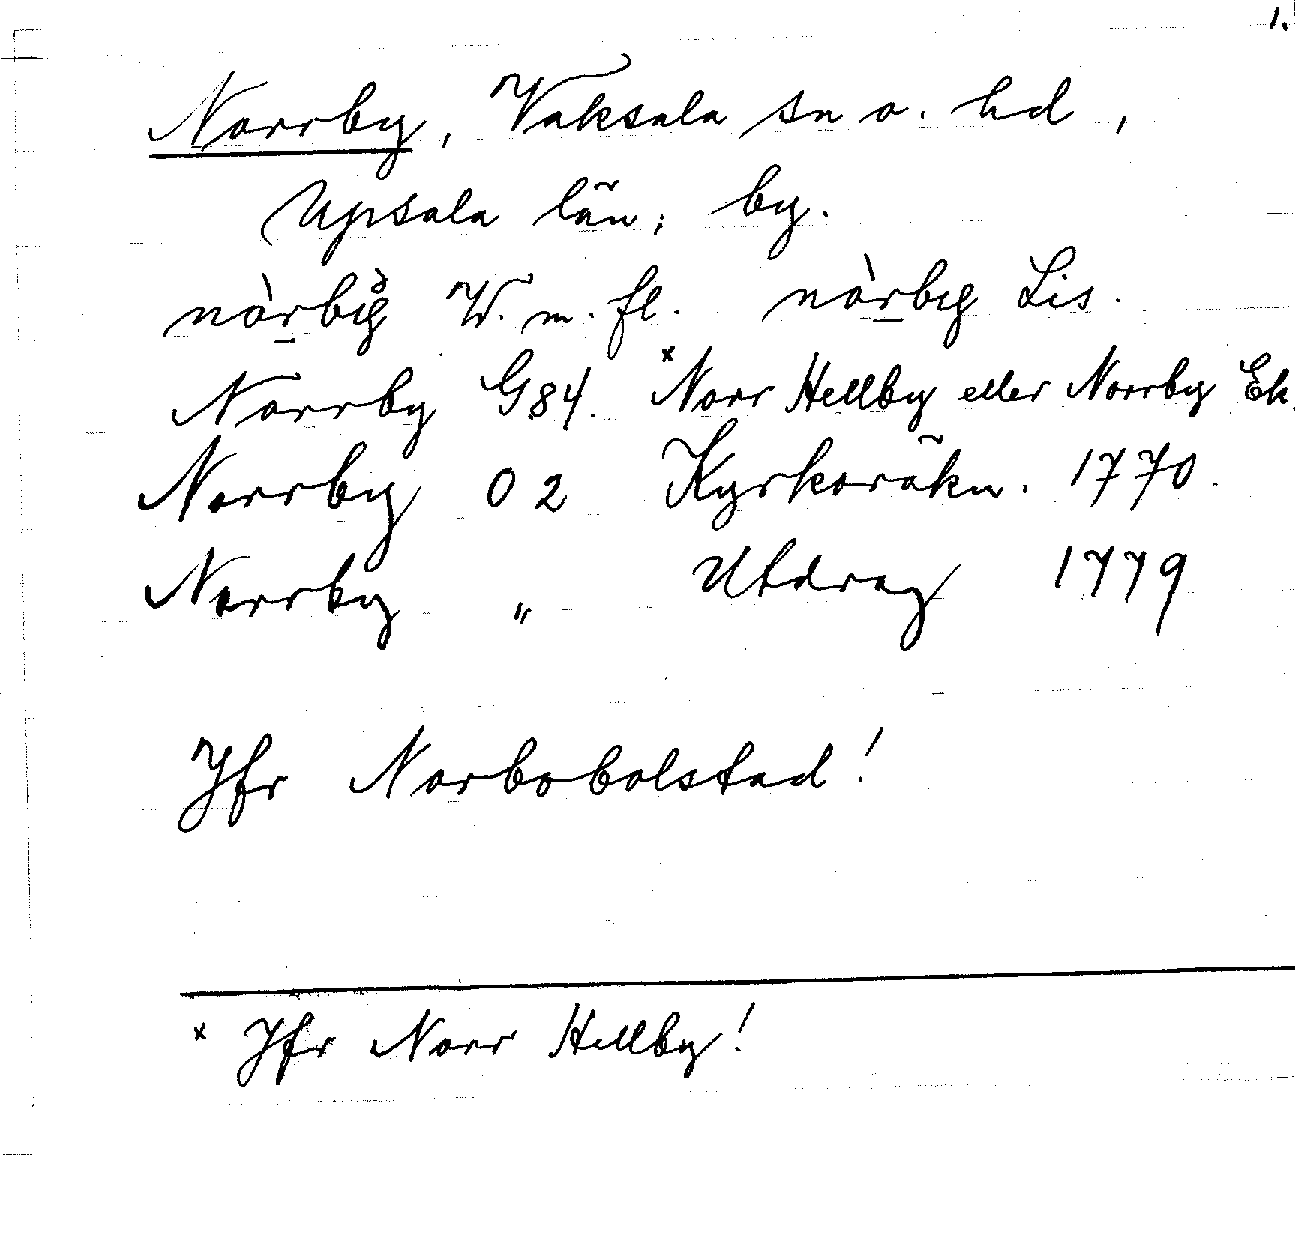 1.
Norrby, Vaksala sn o. hd,
Upsala län; by.
nòrbi̯g W. m. fl. nòrbig Lis.
Norrby G 84. ˣNorr Hellby eller Norrby Ek.
Norrby O 2 Kyrkoräkn. 1770.
Norrby " Utdrag 1779
Jfr Norbobolstad!
x Jfr Norr Hellby!